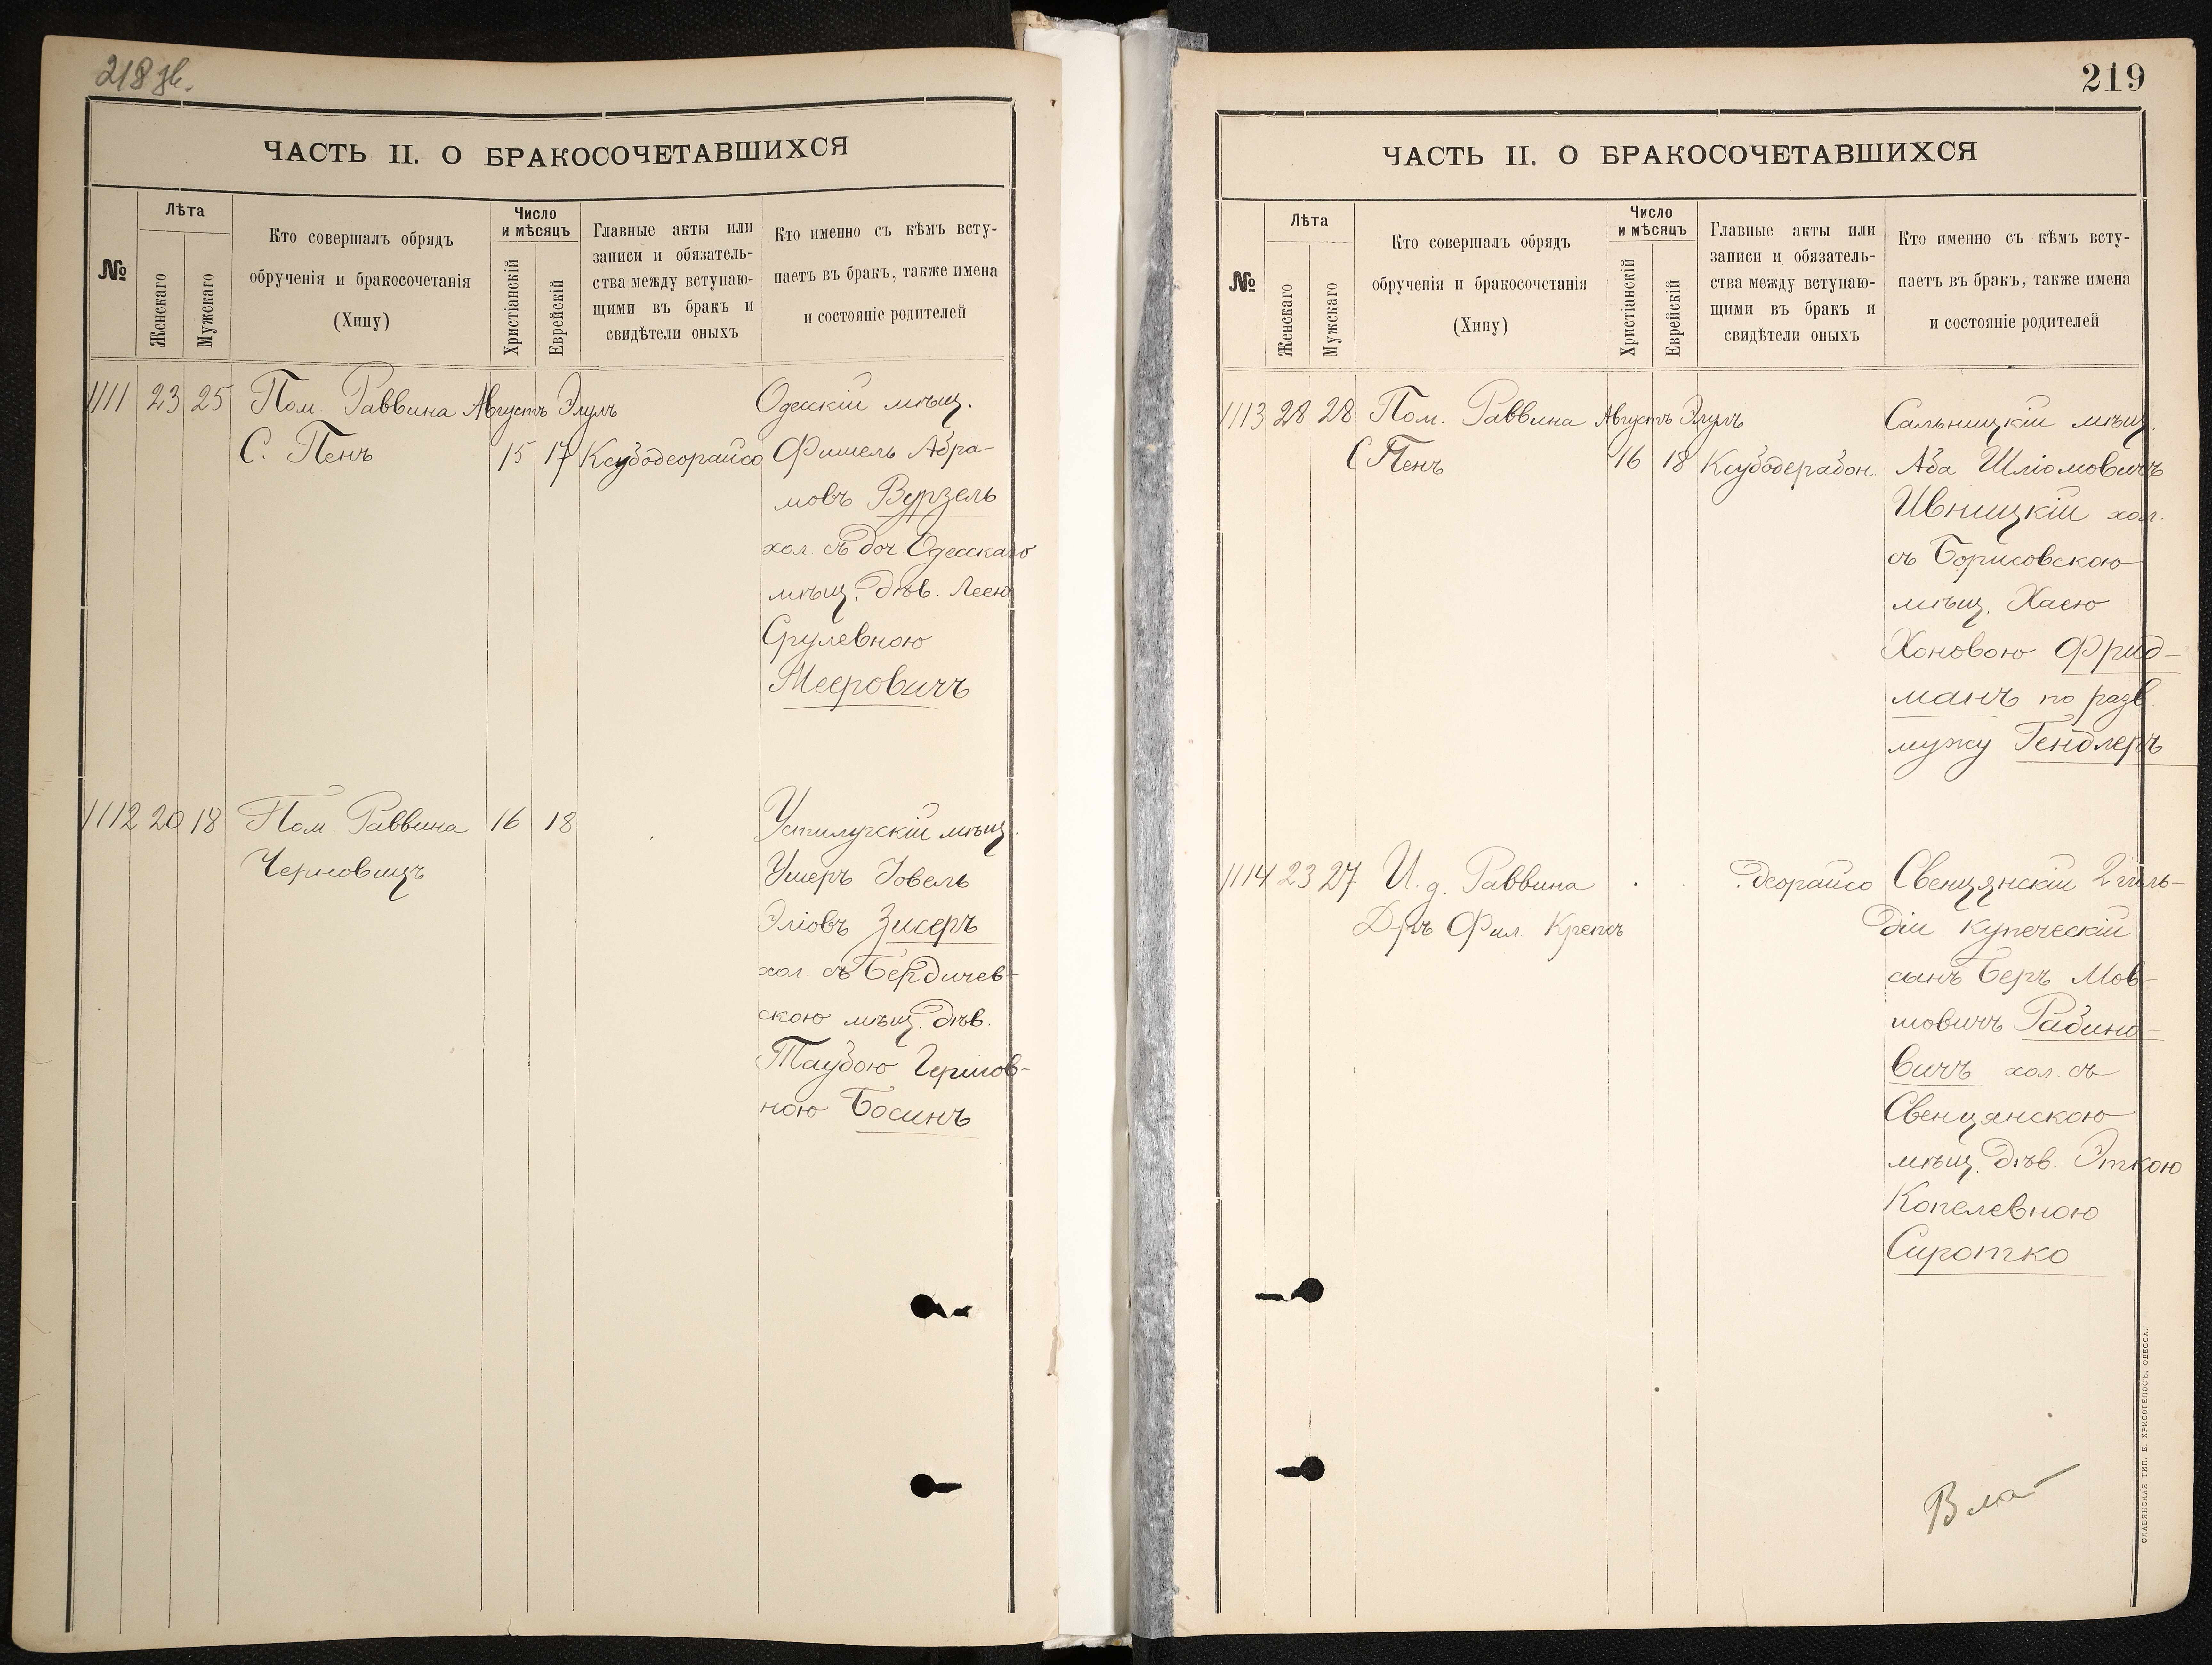 218
ЧАСТЬ II. О БРАКОСОЧЕТАВШИХСЯ
№
Лѣта
Женскаго
Мужскаго
Кто совершалъ обрядъ
обрученія и бракосочетанія
(Хипу)
Число
и мѣсяцъ
Христіанскій
Еврейскій
Главные акты или
записи и обязатель-
ства между вступаю-
щими въ бракъ и
свидѣтели оныхъ
Кто именно съ кѣмъ всту-
паетъ въ бракъ, также имена
и состояніе родителей
1111 23 25 Пом. Раввина Августъ Элулъ Одесскій мѣщ.
С. Пенъ 15 17 Ксубодеорайсо Фишель Абра-
мовъ Вурзель
хол. съ доч. Одесскаго
мѣщ. дѣв. Леею
Срулевною
Мееровичъ
1112 20 18 Пом. Раввина 16 18 Устилугскій мѣщ.
Черновицъ Ушеръ Іовель
Эліовъ Зисеръ
хол. съ Бердичев-
скою мѣщ. дѣв.
Таубою Гершов-
ною Босинъ
219
ЧАСТЬ II. О БРАКОСОЧЕТАВШИХСЯ
№
Лѣта
Женскаго
Мужскаго
Кто совершалъ обрядъ
обрученія и бракосочетанія
(Хипу)
Число
и мѣсяцъ
Христіанскій
Еврейскій
Главные акты или
записи и обязатель-
ства между вступаю-
щими въ бракъ и
свидѣтели оныхъ
Кто именно съ кѣмъ всту-
паетъ въ бракъ, также имена
и состояніе родителей
1113 28 28 Пом. Раввина Августъ Элулъ Сальницкій мѣщ.
С. Пенъ 16 18 Ксубодерабон. Аба Шліомовичъ
Ивницкій хол.
съ Борисовскою
мѣщ. Хаею
Хоновою Фрид-
манъ по разв.
мужу Гендлеръ
1114 23 27 И. д. Раввина деорайсо Свенцянскій 2 гиль-
Д-ръ Фил. Крепсъ діи купеческій
сынъ Беръ Мов-
шовичъ Рабино-
вичъ хол. съ
Свенцянскою
мѣщ. дѣв. Эткою
Копелевною
Сиротко
СЛАВЯНСКАЯ ТИП. Е. ХРИСОГЕЛОСЪ, ОДЕССА.